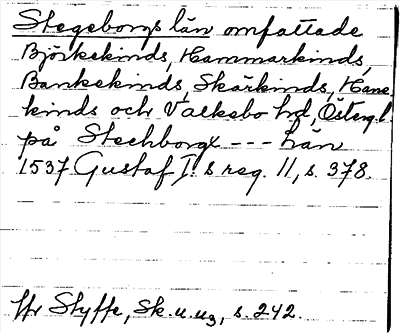 Stegeborgs län omfattade
Björkekinds, Hammarkinds,
Bankekinds, Skärkinds, Hane-
kinds och Valkebo hd, Östergl.
på Stechborgx --- hän
1537 Gustaf I:s reg. 11, s. 378.
Jfr Styffe, Sk. u. u3, s. 242.